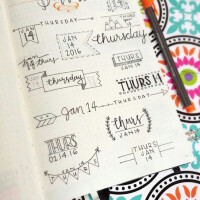 THURSDAY
JAN
14
JAN
14
2016
thursday
thursday
THURS 14
Jan 14
THURSDAY
THURS
01.14.16
thurs
JAN 14
THURS
JAN
14